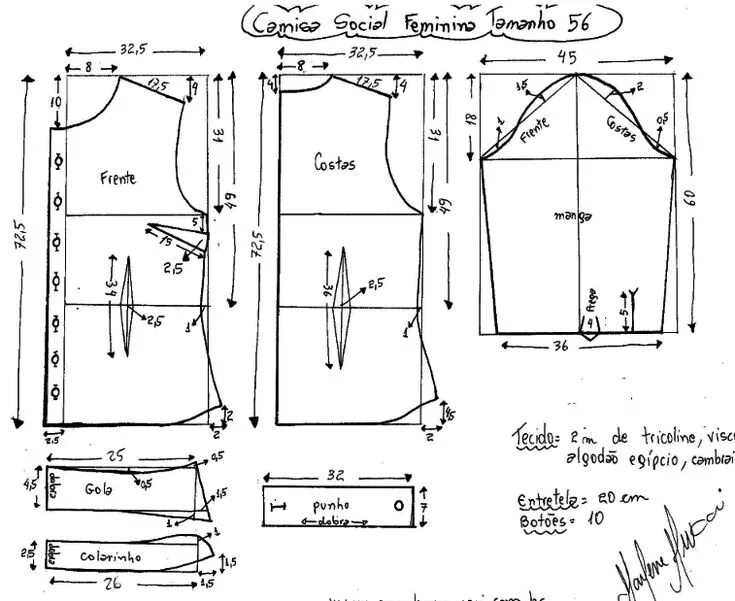 Camisa Social Feminina Tamanho 56
32,5
8
17,5
4
10
31
49
72,5
Frente
5
15
2,5
34
2,5
1
2
2
2,5
32,5
8
4
17,5
4
31
49
72,5
Costas
36
2,5
1
4,5
2
45
18
1,5
2
1
0,5
Frente
Costas
60
manga
Prega
4
5
36
25
0,5
4,5
dobra
Gola
0,5
1,5
1
2,5
dobra
colarinho
1
1,5
26
1,5
32
punho
dobra
7
Tecido= 2 m de tricoline, visc
algodão egípcio, cambrai
Entretela= 20 cm
Botões= 10